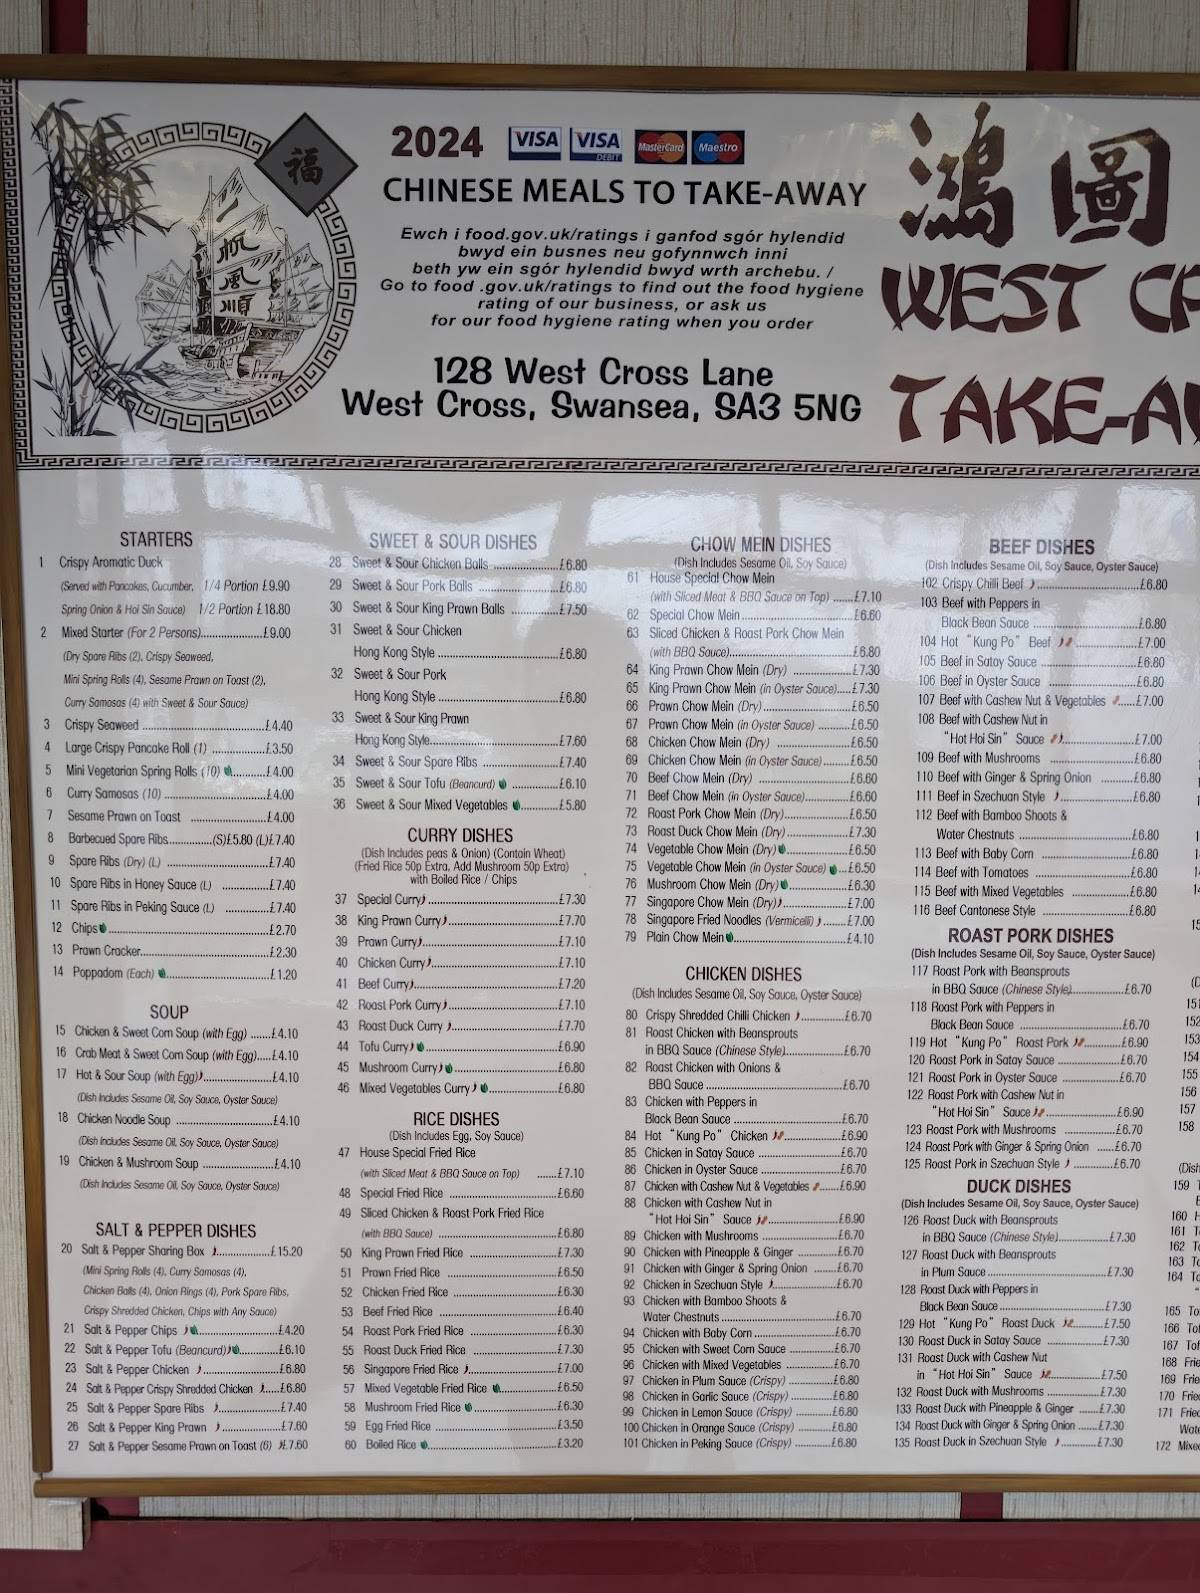 福
一
帆
風
順
2024 VISA VISA DEBIT MasterCard Maestro
CHINESE MEALS TO TAKE-AWAY
Ewch i food.gov.uk/ratings i ganfod sgór hylendid
bwyd ein busnes neu gofynnwch inni
beth yw ein sgór hylendid bwyd wrth archebu. /
Go to food .gov.uk/ratings to find out the food hygiene
rating of our business, or ask us
for our food hygiene rating when you order
128 West Cross Lane
West Cross, Swansea, SA3 5NG
鴻 圖
WEST
TAKE-A
STARTERS
1 Crispy Aromatic Duck
(Served with Pancakes, Cucumber, 1/4 Portion £9.90
Spring Onion & Hoi Sin Sauce) 1/2 Portion £18.80
2 Mixed Starter (For 2 Persons)....£9.00
(Dry Spare Ribs (2), Crispy Seaweed,
Mini Spring Rolls (4), Sesame Prawn on Toast (2),
Curry Samosas (4) with Sweet & Sour Sauce)
3 Crispy Seaweed ....£4.40
4 Large Crispy Pancake Roll (1) ....£3.50
5 Mini Vegetarian Spring Rolls (10) ....£4.00
6 Curry Samosas (10) ....£4.00
7 Sesame Prawn on Toast ....£4.00
8 Barbecued Spare Ribs....(S)£5.80 (L)£7.40
9 Spare Ribs (Dry) (L) ....£7.40
10 Spare Ribs in Honey Sauce (L) ....£7.40
11 Spare Ribs in Peking Sauce (L) ....£7.40
12 Chips....£2.70
13 Prawn Cracker....£2.30
14 Poppadom (Each) ....£1.20
SOUP
15 Chicken & Sweet Corn Soup (with Egg) ....£4.10
16 Crab Meat & Sweet Corn Soup (with Egg)....£4.10
17 Hot & Sour Soup (with Egg)....£4.10
(Dish Includes Sesame Oil, Soy Sauce, Oyster Sauce)
18 Chicken Noodle Soup ....£4.10
(Dish Includes Sesame Oil, Soy Sauce, Oyster Sauce)
19 Chicken & Mushroom Soup ....£4.10
(Dish Includes Sesame Oil, Soy Sauce, Oyster Sauce)
SALT & PEPPER DISHES
20 Salt & Pepper Sharing Box ....£15.20
(Mini Spring Rolls (4), Curry Samosas (4),
Chicken Balls (4), Onion Rings (4), Pork Spare Ribs,
Crispy Shredded Chicken, Chips with Any Sauce)
21 Salt & Pepper Chips ....£4.20
22 Salt & Pepper Tofu (Beancurd)....£6.10
23 Salt & Pepper Chicken ....£6.80
24 Salt & Pepper Crispy Shredded Chicken ....£6.80
25 Salt & Pepper Spare Ribs ....£7.40
26 Salt & Pepper King Prawn ....£7.60
27 Salt & Pepper Sesame Prawn on Toast (6) £7.60
SWEET & SOUR DISHES
28 Sweet & Sour Chicken Balls ....£6.80
29 Sweet & Sour Pork Balls ....£6.80
30 Sweet & Sour King Prawn Balls ....£7.50
31 Sweet & Sour Chicken
Hong Kong Style ....£6.80
32 Sweet & Sour Pork
Hong Kong Style ....£6.80
33 Sweet & Sour King Prawn
Hong Kong Style....£7.60
34 Sweet & Sour Spare Ribs ....£7.40
35 Sweet & Sour Tofu (Beancurd) ....£6.10
36 Sweet & Sour Mixed Vegetables ....£5.80
CURRY DISHES
(Dish Includes peas & Onion) (Contain Wheat)
(Fried Rice 50p Extra, Add Mushroom 50p Extra)
with Boiled Rice / Chips
37 Special Curry....£7.30
38 King Prawn Curry....£7.70
39 Prawn Curry....£7.10
40 Chicken Curry....£7.10
41 Beef Curry....£7.20
42 Roast Pork Curry....£7.10
43 Roast Duck Curry ....£7.70
44 Tofu Curry....£6.90
45 Mushroom Curry....£6.80
46 Mixed Vegetables Curry ....£6.80
RICE DISHES
(Dish Includes Egg, Soy Sauce)
47 House Special Fried Rice
(with Sliced Meat & BBQ Sauce on Top) ....£7.10
48 Special Fried Rice ....£6.60
49 Sliced Chicken & Roast Pork Fried Rice
(with BBQ Sauce) ....£6.80
50 King Prawn Fried Rice ....£7.30
51 Prawn Fried Rice ....£6.50
52 Chicken Fried Rice ....£6.30
53 Beef Fried Rice ....£6.40
54 Roast Pork Fried Rice ....£6.30
55 Roast Duck Fried Rice ....£7.30
56 Singapore Fried Rice ....£7.00
57 Mixed Vegetable Fried Rice ....£6.50
58 Mushroom Fried Rice ....£6.30
59 Egg Fried Rice ....£3.50
60 Boiled Rice ....£3.20
CHOW MEIN DISHES
(Dish Includes Sesame Oil, Soy Sauce)
61 House Special Chow Mein
(with Sliced Meat & BBQ Sauce on Top) ....£7.10
62 Special Chow Mein....£6.60
63 Sliced Chicken & Roast Pork Chow Mein
(with BBQ Sauce)....£6.80
64 King Prawn Chow Mein (Dry) ....£7.30
65 King Prawn Chow Mein (in Oyster Sauce)....£7.30
66 Prawn Chow Mein (Dry)....£6.50
67 Prawn Chow Mein (in Oyster Sauce) ....£6.50
68 Chicken Chow Mein (Dry) ....£6.50
69 Chicken Chow Mein (in Oyster Sauce)....£6.50
70 Beef Chow Mein (Dry) ....£6.60
71 Beef Chow Mein (in Oyster Sauce)....£6.60
72 Roast Pork Chow Mein (Dry)....£6.50
73 Roast Duck Chow Mein (Dry)....£7.30
74 Vegetable Chow Mein (Dry)....£6.50
75 Vegetable Chow Mein (in Oyster Sauce) ...£6.50
76 Mushroom Chow Mein (Dry)....£6.30
77 Singapore Chow Mein (Dry)....£7.00
78 Singapore Fried Noodles (Vermicelli) ....£7.00
79 Plain Chow Mein....£4.10
CHICKEN DISHES
(Dish Includes Sesame Oil, Soy Sauce, Oyster Sauce)
80 Crispy Shredded Chilli Chicken ....£6.70
81 Roast Chicken with Beansprouts
in BBQ Sauce (Chinese Style)....£6.70
82 Roast Chicken with Onions &
BBQ Sauce ....£6.70
83 Chicken with Peppers in
Black Bean Sauce ....£6.70
84 Hot “Kung Po” Chicken ....£6.90
85 Chicken in Satay Sauce ....£6.70
86 Chicken in Oyster Sauce ....£6.70
87 Chicken with Cashew Nut & Vegetables ....£6.90
88 Chicken with Cashew Nut in
“Hot Hoi Sin” Sauce ....£6.90
89 Chicken with Mushrooms ....£6.70
90 Chicken with Pineapple & Ginger ....£6.70
91 Chicken with Ginger & Spring Onion ....£6.70
92 Chicken in Szechuan Style ....£6.70
93 Chicken with Bamboo Shoots &
Water Chestnuts ....£6.70
94 Chicken with Baby Corn ....£6.70
95 Chicken with Sweet Corn Sauce ....£6.70
96 Chicken with Mixed Vegetables ....£6.70
97 Chicken in Plum Sauce (Crispy) ....£6.80
98 Chicken in Garlic Sauce (Crispy) ....£6.80
99 Chicken in Lemon Sauce (Crispy) ....£6.80
100 Chicken in Orange Sauce (Crispy) ....£6.80
101 Chicken in Peking Sauce (Crispy) ....£6.80
BEEF DISHES
(Dish Includes Sesame Oil, Soy Sauce, Oyster Sauce)
102 Crispy Chilli Beef ....£6.80
103 Beef with Peppers in
Black Bean Sauce ....£6.80
104 Hot “Kung Po” Beef ....£7.00
105 Beef in Satay Sauce ....£6.80
106 Beef in Oyster Sauce ....£6.80
107 Beef with Cashew Nut & Vegetables ....£7.00
108 Beef with Cashew Nut in
“Hot Hoi Sin” Sauce ....£7.00
109 Beef with Mushrooms ....£6.80
110 Beef with Ginger & Spring Onion ....£6.80
111 Beef in Szechuan Style ....£6.80
112 Beef with Bamboo Shoots &
Water Chestnuts ....£6.80
113 Beef with Baby Corn ....£6.80
114 Beef with Tomatoes ....£6.80
115 Beef with Mixed Vegetables ....£6.80
116 Beef Cantonese Style ....£6.80
ROAST PORK DISHES
(Dish Includes Sesame Oil, Soy Sauce, Oyster Sauce)
117 Roast Pork with Beansprouts
in BBQ Sauce (Chinese Style)....£6.70
118 Roast Pork with Peppers in
Black Bean Sauce ....£6.70
119 Hot “Kung Po” Roast Pork ....£6.90
120 Roast Pork in Satay Sauce ....£6.70
121 Roast Pork in Oyster Sauce ....£6.70
122 Roast Pork with Cashew Nut in
“Hot Hoi Sin” Sauce ....£6.90
123 Roast Pork with Mushrooms ....£6.70
124 Roast Pork with Ginger & Spring Onion ....£6.70
125 Roast Pork in Szechuan Style ....£6.70
DUCK DISHES
(Dish Includes Sesame Oil, Soy Sauce, Oyster Sauce)
126 Roast Duck with Beansprouts
in BBQ Sauce (Chinese Style)....£7.30
127 Roast Duck with Beansprouts
in Plum Sauce ....£7.30
128 Roast Duck with Peppers in
Black Bean Sauce ....£7.30
129 Hot “Kung Po” Roast Duck ....£7.50
130 Roast Duck in Satay Sauce ....£7.30
131 Roast Duck with Cashew Nut
in “Hot Hoi Sin” Sauce ....£7.50
132 Roast Duck with Mushrooms ....£7.30
133 Roast Duck with Pineapple & Ginger ....£7.30
134 Roast Duck with Ginger & Spring Onion ....£7.30
135 Roast Duck in Szechuan Style ....£7.30
151
152
153
154
155
156
157
158
(Dish
159
160
161
162
163
164
165 Tof
166 Tof
167 Tof
168 Frie
169 Frie
170 Frie
171 Fried
Wate
172 Mixe